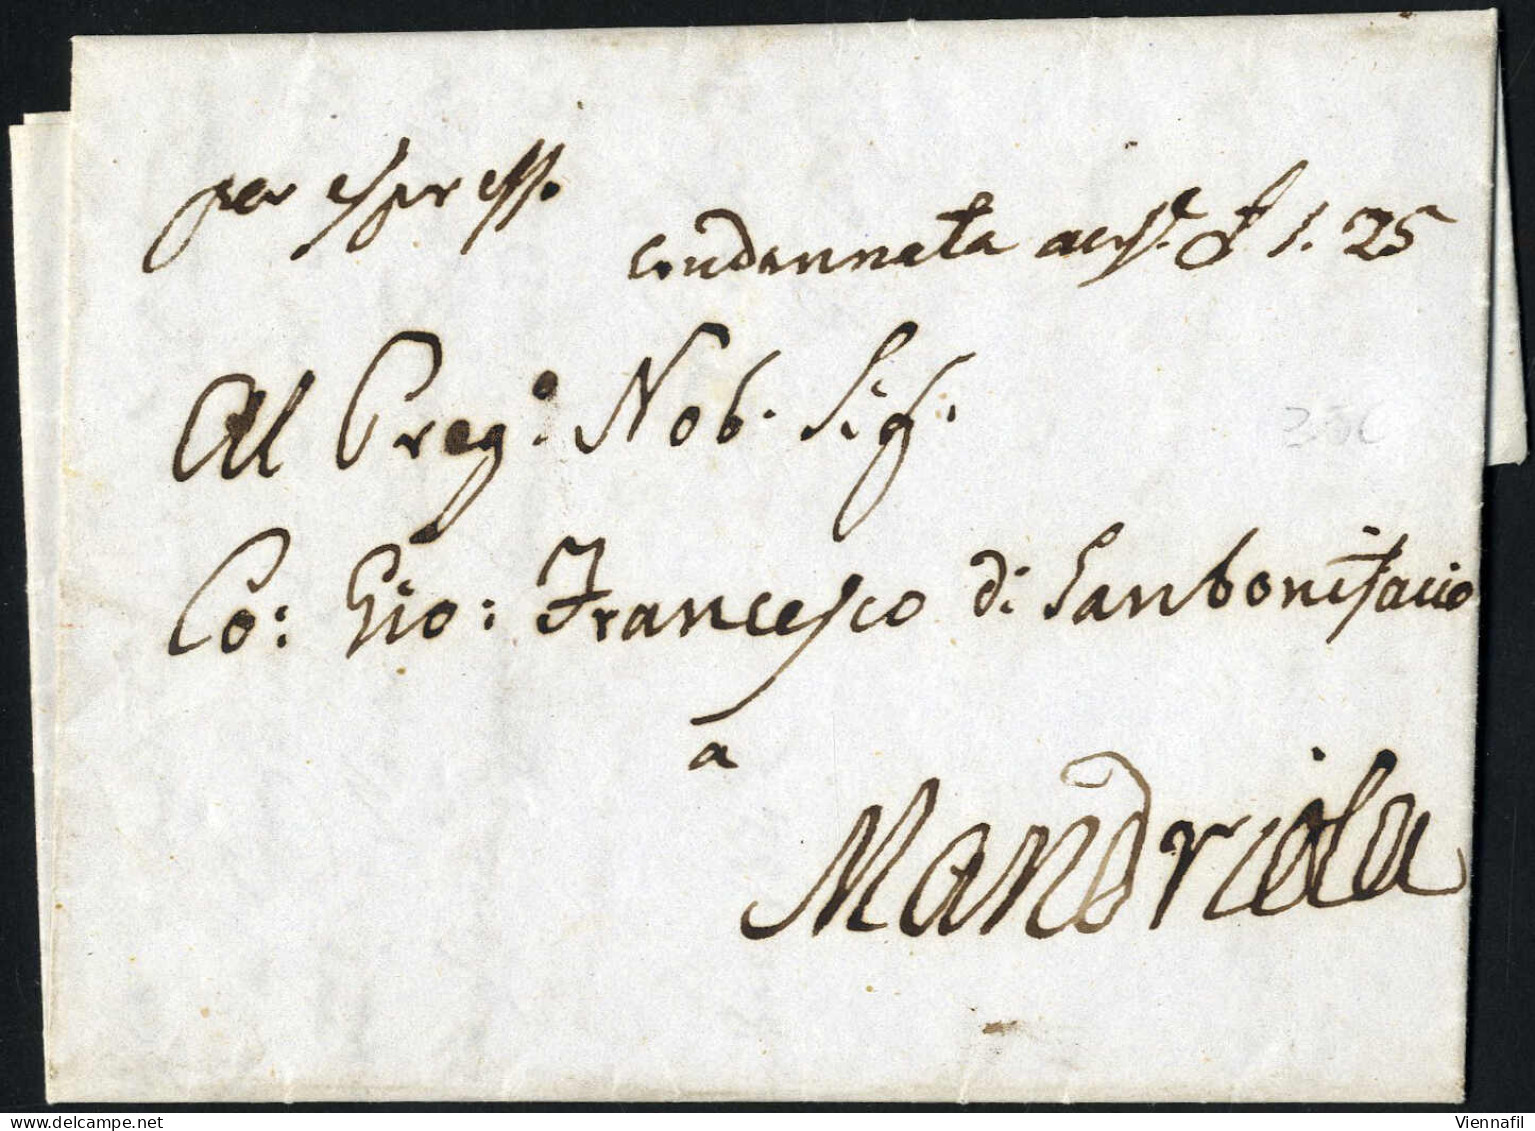 per espresso
condannata aus.e £ 1. 25
Al Preg.o Nob. Sig.
Co: Gio: Francesco di Sanbonifacio
a
Mandriola
delcampe.net
Viennafil